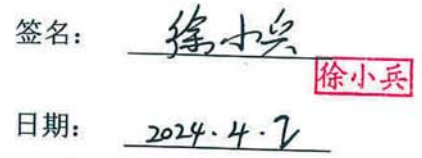 签名： 徐小兵
徐小兵
日期： 2024.4.2